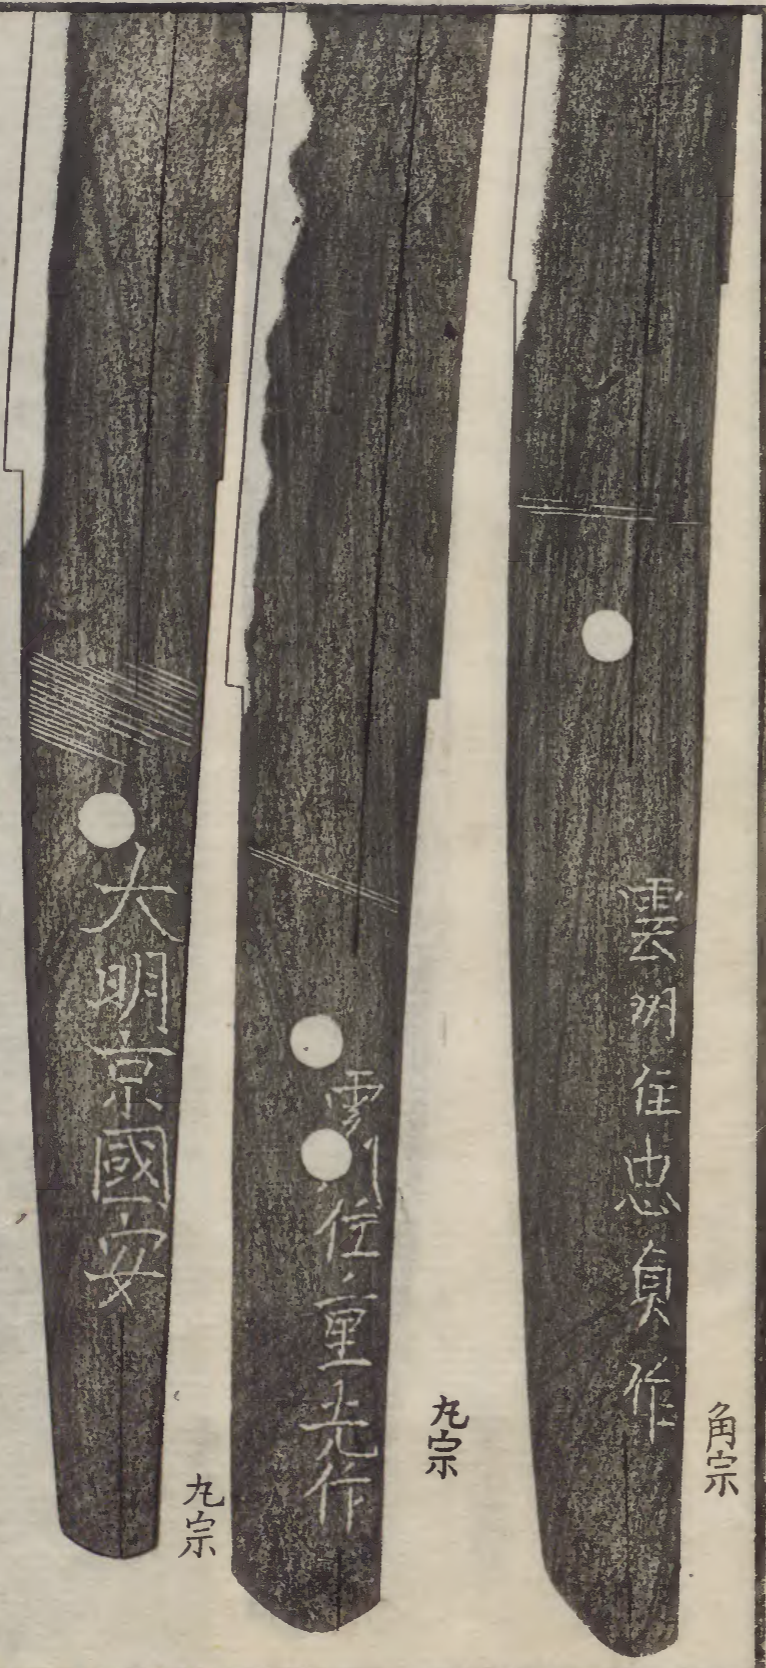 雲州住忠貞作
角宗
雲州住重光作
丸宗
大明京國安
丸宗